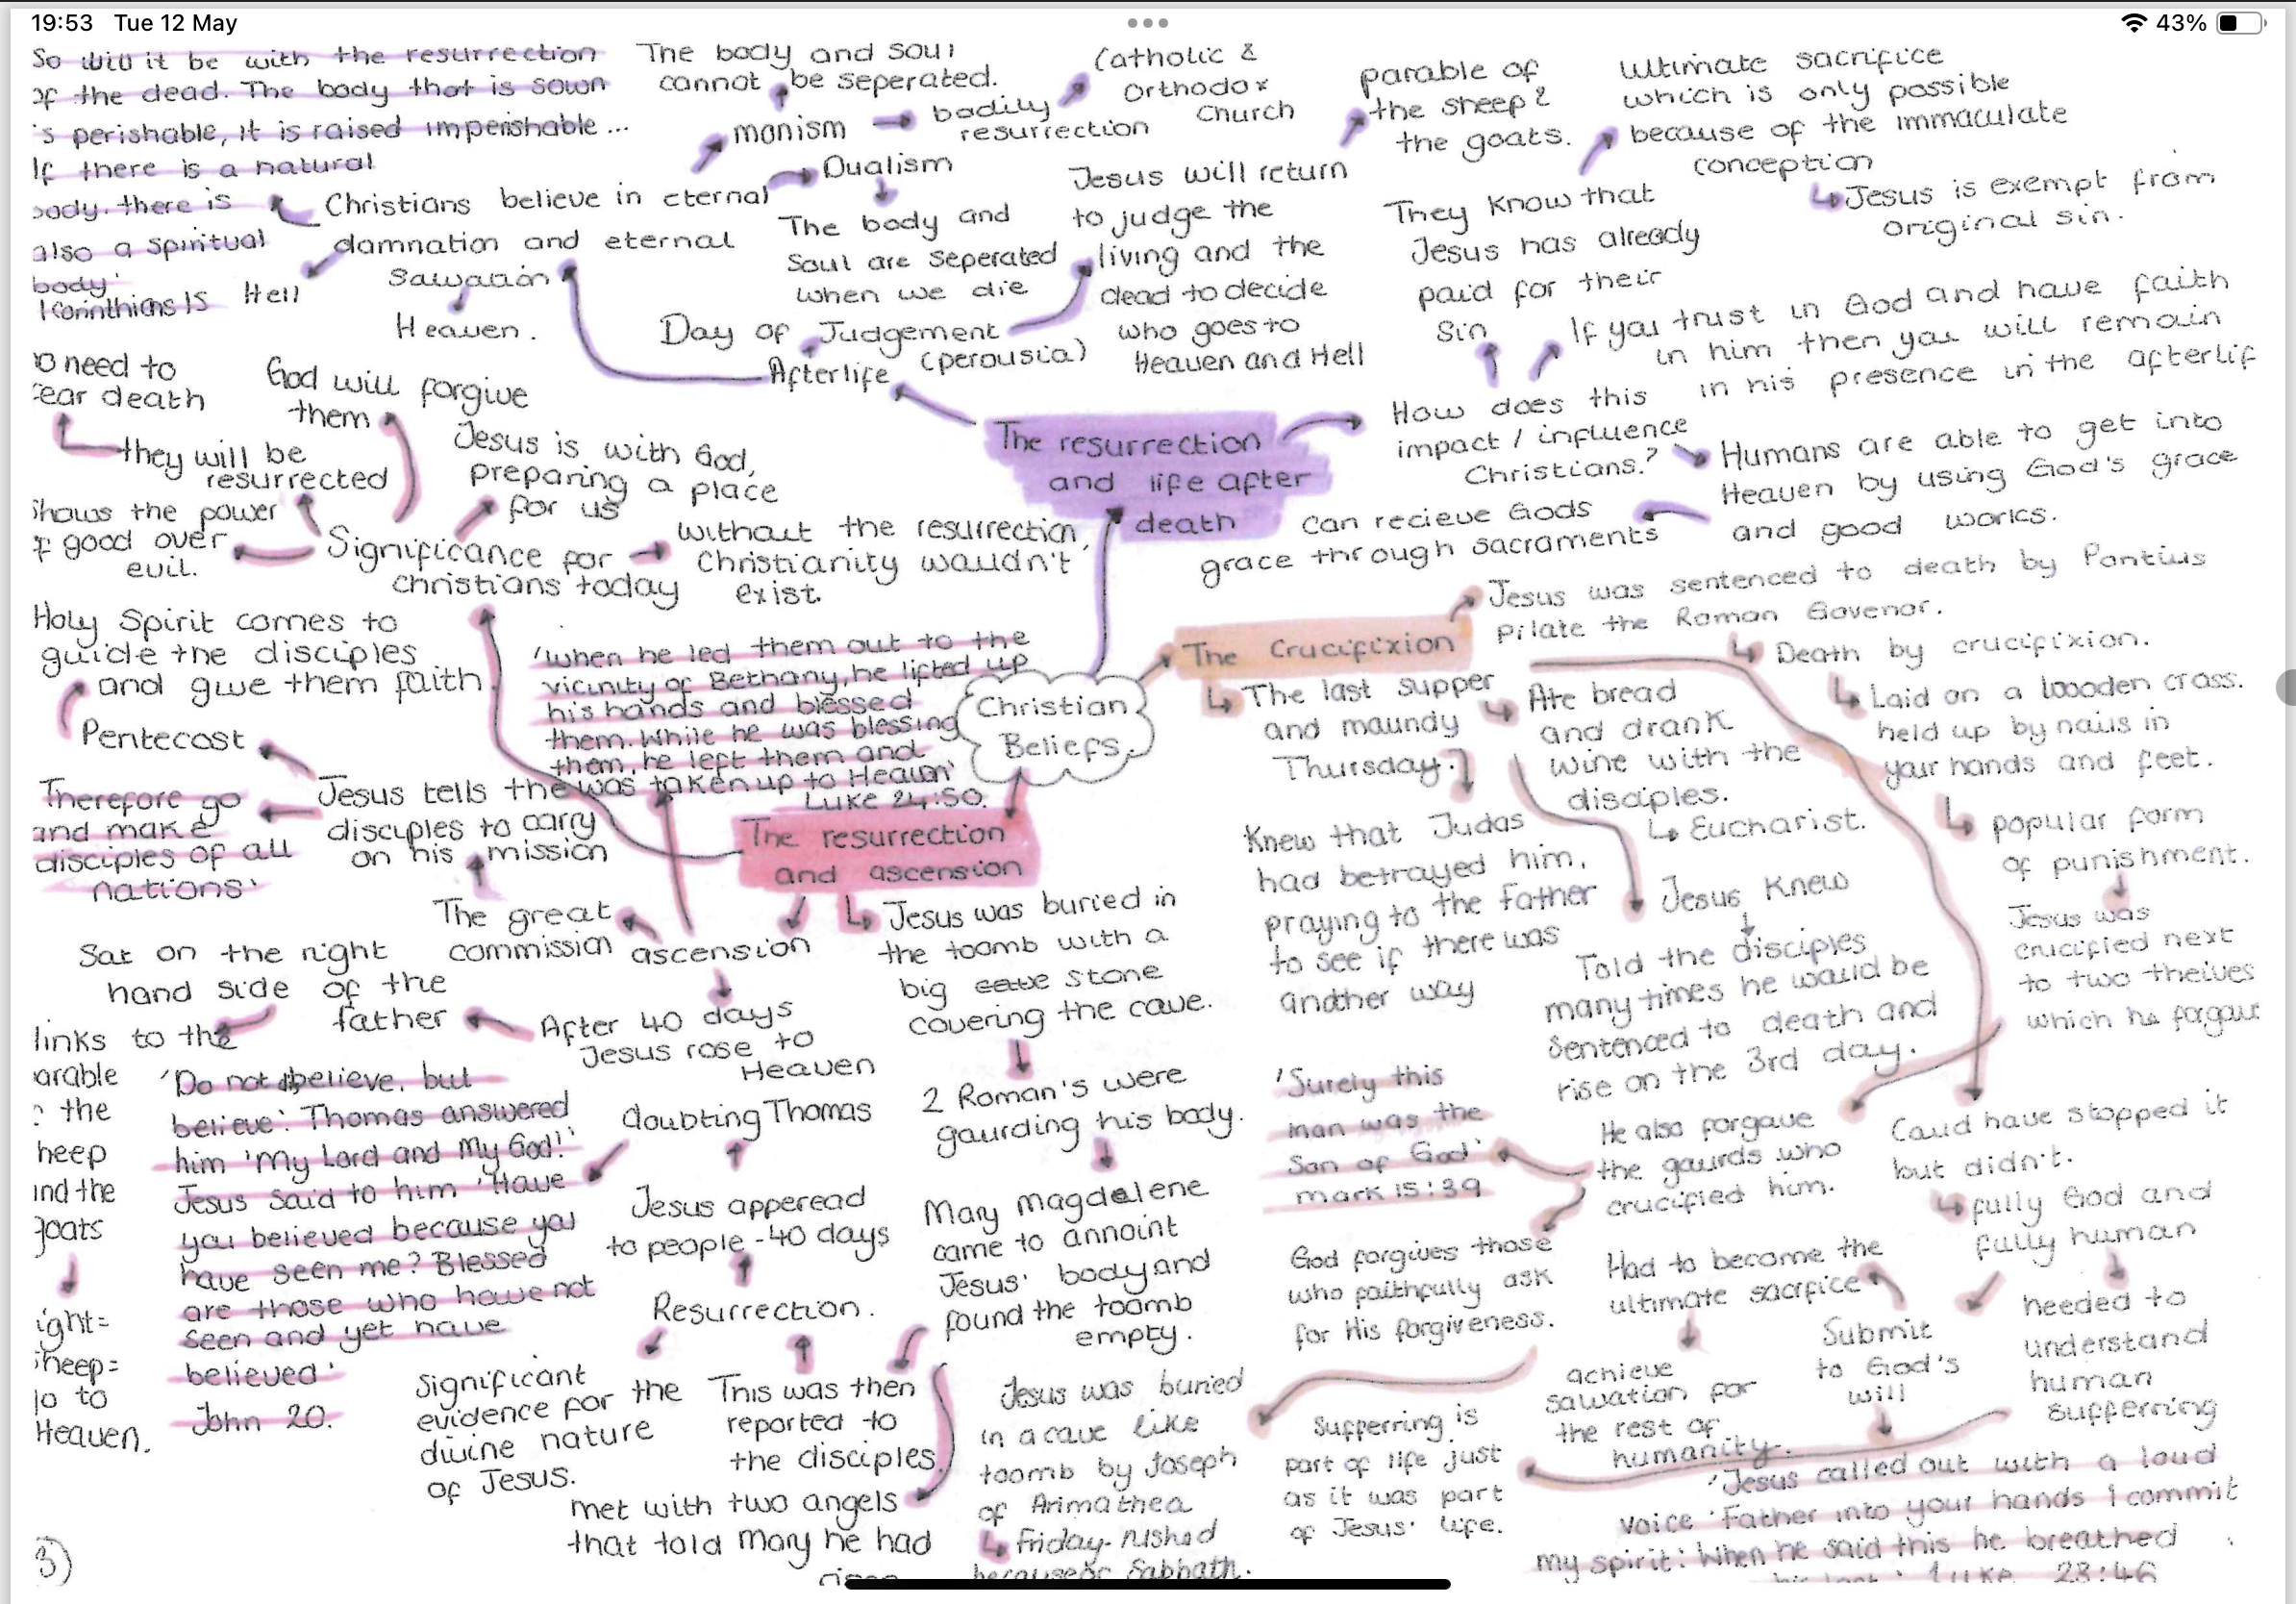 19:53 Tue 12 May
43%
So will it be with the resurrection
of the dead. The body that is sown
is perishable, it is raised imperishable...
If there is a natural
body, there is
also a spiritual
body'
1 Corinthians 15
The body and soul
cannot be seperated.
monism
bodily
resurrection
Catholic &
Orthodox
Church
Dualism
The body and
Soul are seperated
when we die
Christians believe in eternal
damnation and eternal
Salvation
Hell
Heaven.
Day of Judgement
(perousia)
Afterlife
Jesus will return
to judge the
living and the
dead to decide
who goes to
Heaven and Hell
parable of
the sheep &
the goats.
Ultimate sacrifice
which is only possible
because of the immaculate
conception
Jesus is exempt from
original sin.
They know that
Jesus has already
paid for their
Sin
If you trust in God and have faith
in him then you will remain
in his presence in the afterlif
The resurrection
and life after
death
How does this
impact / influence
Christians?
Humans are able to get into
Heaven by using God's grace
and good works.
Can recieve Gods
grace through sacraments
o need to
ear death
they will be
resurrected
God will forgive
them
Jesus is with God,
preparing a place
for us
shows the power
f good over
evil.
Significance for
christians today
without the resurrection,
Christianity wouldn't
exist.
Holy Spirit comes to
guide the disciples
and give them faith
Pentecost
'when he led them out to the
vicinity of Bethany, he lifted up
his hands and blessed
them. While he was blessing
them, he left them and
was taken up to Heaven'
Luke 24:50.
Christian
Beliefs.
The Crucifixion
Jesus was sentenced to death by Pontius
Pilate the Roman Govenor.
Death by crucifixion.
Laid on a wooden cross.
held up by nails in
your hands and feet.
popular form
of punishment.
Jesus was
crucified next
to two theives
which he forgave
The last supper
and maundy
Thursday.
Ate bread
and drank
wine with the
disciples.
Eucharist.
Knew that Judas
had betrayed him,
praying to the Father
to see if there was
another way
Jesus knew
Told the disciples
many times he would be
Sentenced to death and
rise on the 3rd day.
Therefore go
and make
disciples of all
nations'
Jesus tells the
disciples to carry
on his mission
The great
commission
The resurrection
and ascension
ascension
Jesus was buried in
the toomb with a
big cave stone
covering the cave.
Sat on the right
hand side of the
father
After 40 days
Jesus rose to
Heaven
links to the
arable
the
heep
and the
goats
ight=
heep=
go to
Heaven.
'Do not believe, but
believe'. Thomas answered
him 'My Lord and My God!'
Jesus said to him 'Have
you believed because you
have seen me? Blessed
are those who have not
seen and yet have
believed'
John 20.
doubting Thomas
Jesus apperead
to people - 40 days
Resurrection.
Significant
evidence for the
divine nature
of Jesus.
2 Roman's were
gaurding his body.
Mary magdelene
came to annoint
Jesus' body and
found the toomb
empty.
This was then
reported to
the disciples
met with two angels
that told Mary he had
risen
'Surely this
man was the
Son of God'
mark 15:39
He also forgave
the gaurds who
crucified him.
God forgives those
who faithfully ask
for His forgiveness.
Could have stopped it
but didn't.
fully God and
fully human
Had to become the
ultimate sacrfice
Submit
to God's
will
needed to
understand
human
sufferring
achieve
salvation for
the rest of
humanity.
Jesus was buried
in a cave like
toomb by Joseph
of Arimathea
Friday - rushed
because of Sabbath.
Sufferring is
part of life just
as it was part
of Jesus' life.
'Jesus called out with a loud
voice 'Father into your hands I commit
my spirit'. When he said this he breathed
his last.' Luke 23:46
3)